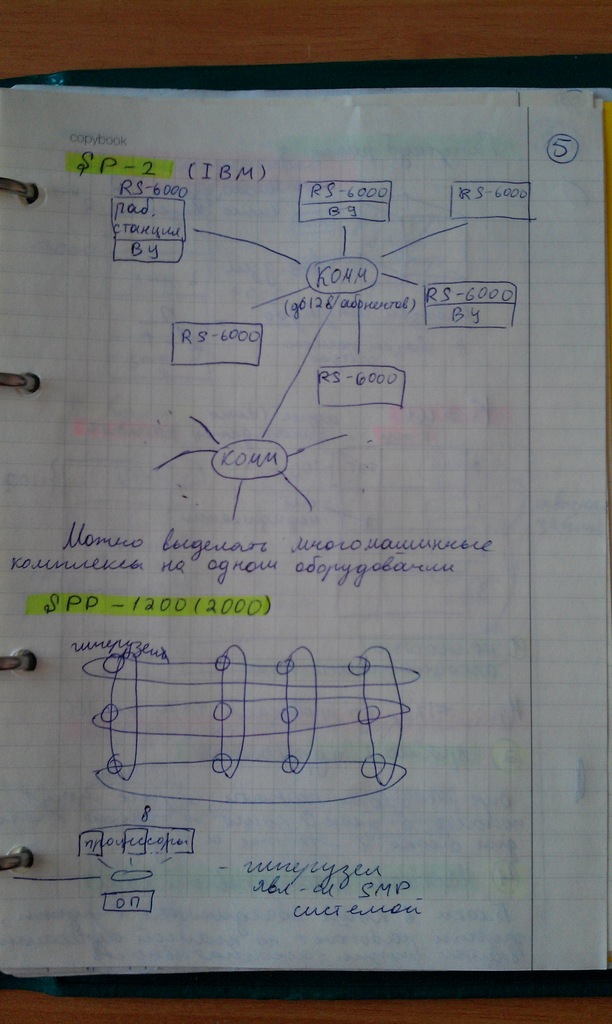 copybook
5
SP-2 (IBM)
RS-6000
раб.
станция
ВУ
RS-6000
ВУ
RS-6000
КОММ
(до 128 абонентов)
RS-6000
ВУ
RS-6000
RS-6000
КОММ
Можно выделать многомашинные
комплексы на одном оборудовании
SPP-1200(2000)
гиперузел
8
процессоры
ОП
- гиперузел
явл-ся SMP
системой